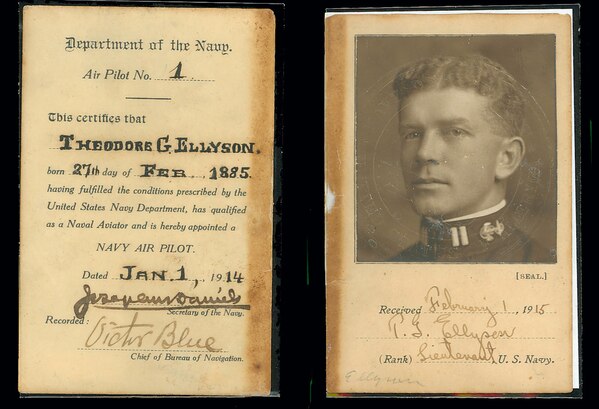 Department of the Navy.
Air Pilot No. 1
This certifies that
THEODORE G. ELLYSON.
born 27th day of FEB. 1885.
having fulfilled the conditions prescribed by the
United States Navy Department, has qualified
as a Naval Aviator and is hereby appointed a
NAVY AIR PILOT.
Dated JAN. 1, 1914
Josephus Daniels
Secretary of the Navy.
Recorded:
Victor Blue
Chief of Bureau of Navigation.
[SEAL.]
Received February 1, 1915
T. G. Ellyson
(Rank) Lieutenant U. S. Navy.
Ellyson